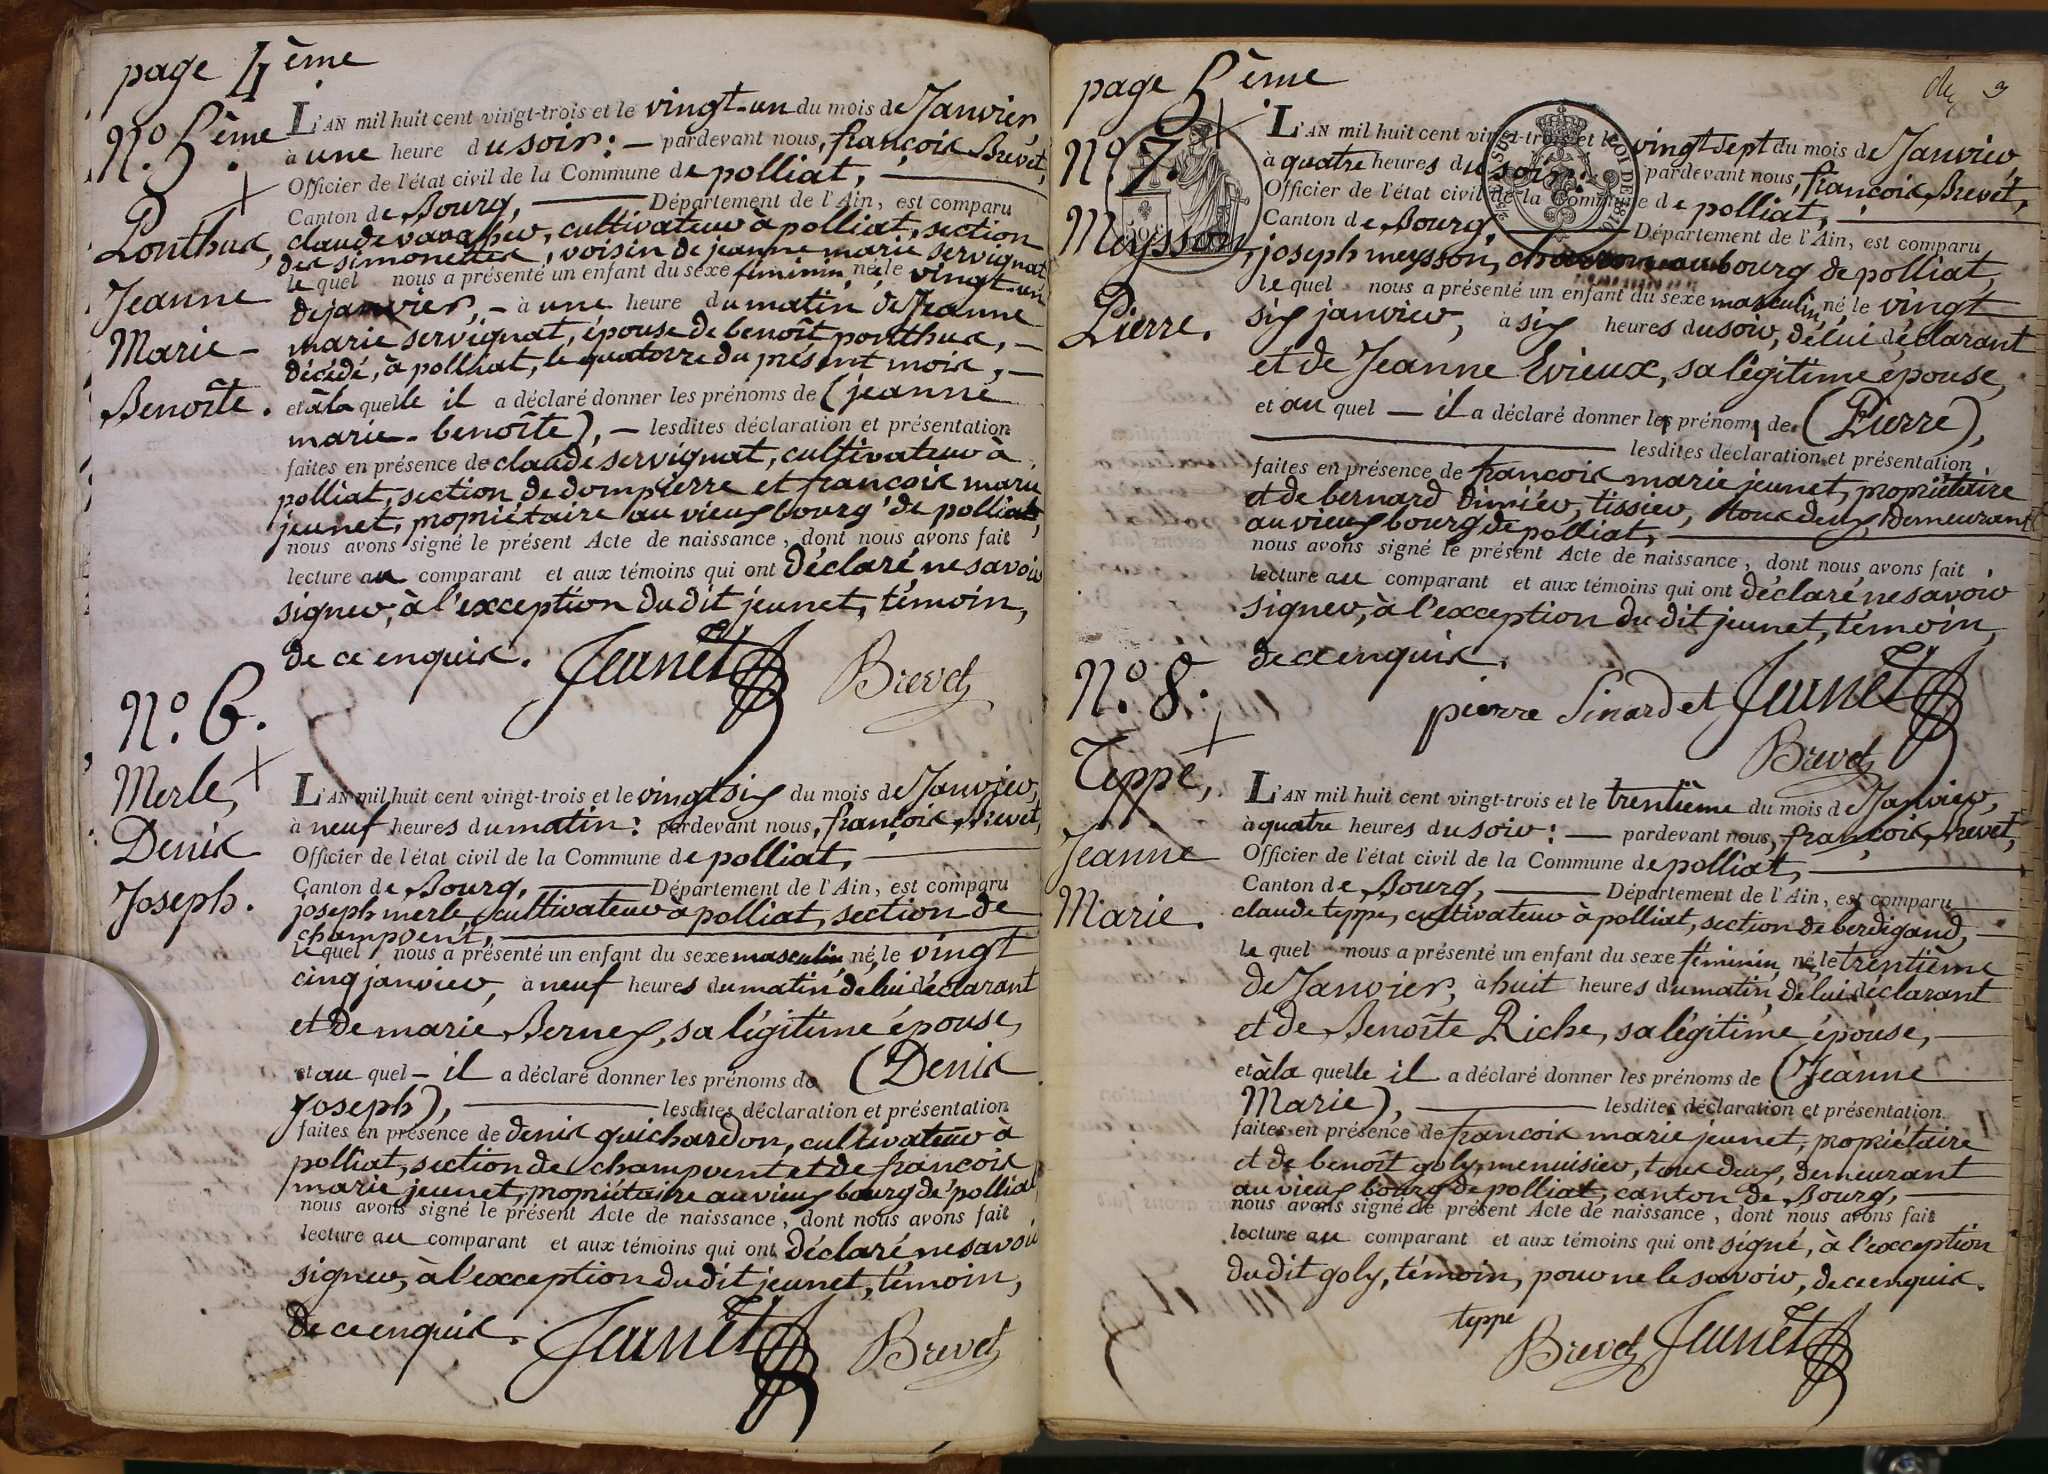 page 4ème
N.° 5.ème
Ponthus,
Jeanne
Marie-
Benoîte.
L'AN mil huit cent vingt-trois et le vingt-un du mois de Janvier,
à une heure du soir: — pardevant nous, françois Brevet,
Officier de l'état civil de la Commune de polliat,
Canton de Bourg, — Département de l'Ain, est comparu
claude vavasseur, cultivateur à polliat, section
des simonettes, voisin de jeanne marie servignat
le quel nous a présenté un enfant du sexe féminin, né, le vingt-un
de janvier, - à une heure du matin de Jeanne
marie servignat, épouse de benoît ponthus, —
décédé, à polliat, le quatorze du présent mois, —
et à la quelle il a déclaré donner les prénoms de (jeanne
marie-benoîte), — lesdites déclaration et présentation
faites en présence de claude servignat, cultivateur à
polliat, section de dompierre et françois marie
jeunet, propriétaire au vieux bourg de polliat,
nous avons signé le présent Acte de naissance, dont nous avons fait
lecture au comparant et aux témoins qui ont déclaré ne savoir
signer, à l'exception du dit jeunet, témoin,
de ce enquis. Jeunet Brevet
N.° 6.
Merle,
Denis
Joseph.
L'AN mil huit cent vingt-trois et le vingt six du mois de Janvier,
à neuf heures du matin: pardevant nous, françois Brevet,
Officier de l'état civil de la Commune de polliat,
Canton de Bourg, — Département de l'Ain, est comparu
joseph merle, cultivateur à polliat, section de
champvent,
le quel nous a présenté un enfant du sexe masculin né, le vingt
cinq janvier, à neuf heures du matin de lui déclarant
et de marie Bernex, sa légitime épouse,
et au quel — il a déclaré donner les prénoms de (Denis
Joseph), — lesdites déclaration et présentation
faites en présence de denis guichardon, cultivateur à
polliat, section de champvent et de françois
marie jeunet, propriétaire au vieux bourg de polliat
nous avons signé le présent Acte de naissance, dont nous avons fait
lecture au comparant et aux témoins qui ont déclaré ne savoir
signer, à l'exception du dit jeunet, témoin,
de ce enquis. Jeunet Brevet
page 5ème
3
N.° 7.
Meysson,
Pierre.
L'AN mil huit cent vingt-trois et le vingt sept du mois de Janvier,
à quatre heures du soir: pardevant nous, françois Brevet,
Officier de l'état civil de la Commune de polliat,
Canton de Bourg, — Département de l'Ain, est comparu
joseph meysson, au bourg de polliat,
le quel nous a présenté un enfant du sexe masculin, né, le vingt
six janvier, à six heures du soir, de lui déclarant
et de Jeanne Evieux, sa légitime épouse,
et au quel — il a déclaré donner les prénoms de (Pierre),
lesdites déclaration et présentation
faites en présence de françois marie jeunet, propriétaire
et de bernard dimier, tissier, tous deux, demeurant
au vieux bourg de polliat,
nous avons signé le présent Acte de naissance, dont nous avons fait
lecture au comparant et aux témoins qui ont déclaré ne savoir
signer, à l'exception du dit jeunet, témoin,
de ce enquis.
pierre Sinardet Jeunet
Brevet
N.° 8.
Teppe,
Jeanne
Marie.
L'AN mil huit cent vingt-trois et le trentième du mois de Janvier,
à quatre heures du soir: — pardevant nous, françois Brevet,
Officier de l'état civil de la Commune de polliat,
Canton de Bourg, — Département de l'Ain, est comparu
claude teppe, cultivateur à polliat, section de berdigand,
le quel nous a présenté un enfant du sexe féminin, né, le trentième
de Janvier, à huit heures du matin, de lui déclarant
et de Benoîte Riche, sa légitime épouse, —
et à la quelle il a déclaré donner les prénoms de (Jeanne
Marie), — lesdites déclaration et présentation
faites en présence de françois marie jeunet, propriétaire
et de benoît goly, menuisier, tous deux, demeurant
au vieux bourg de polliat, canton de Bourg, —
nous avons signé le présent Acte de naissance, dont nous avons fait
lecture au comparant et aux témoins qui ont signé, à l'exception
du dit goly, témoin, pour ne le savoir, de ce enquis.
teppe
Brevet Jeunet